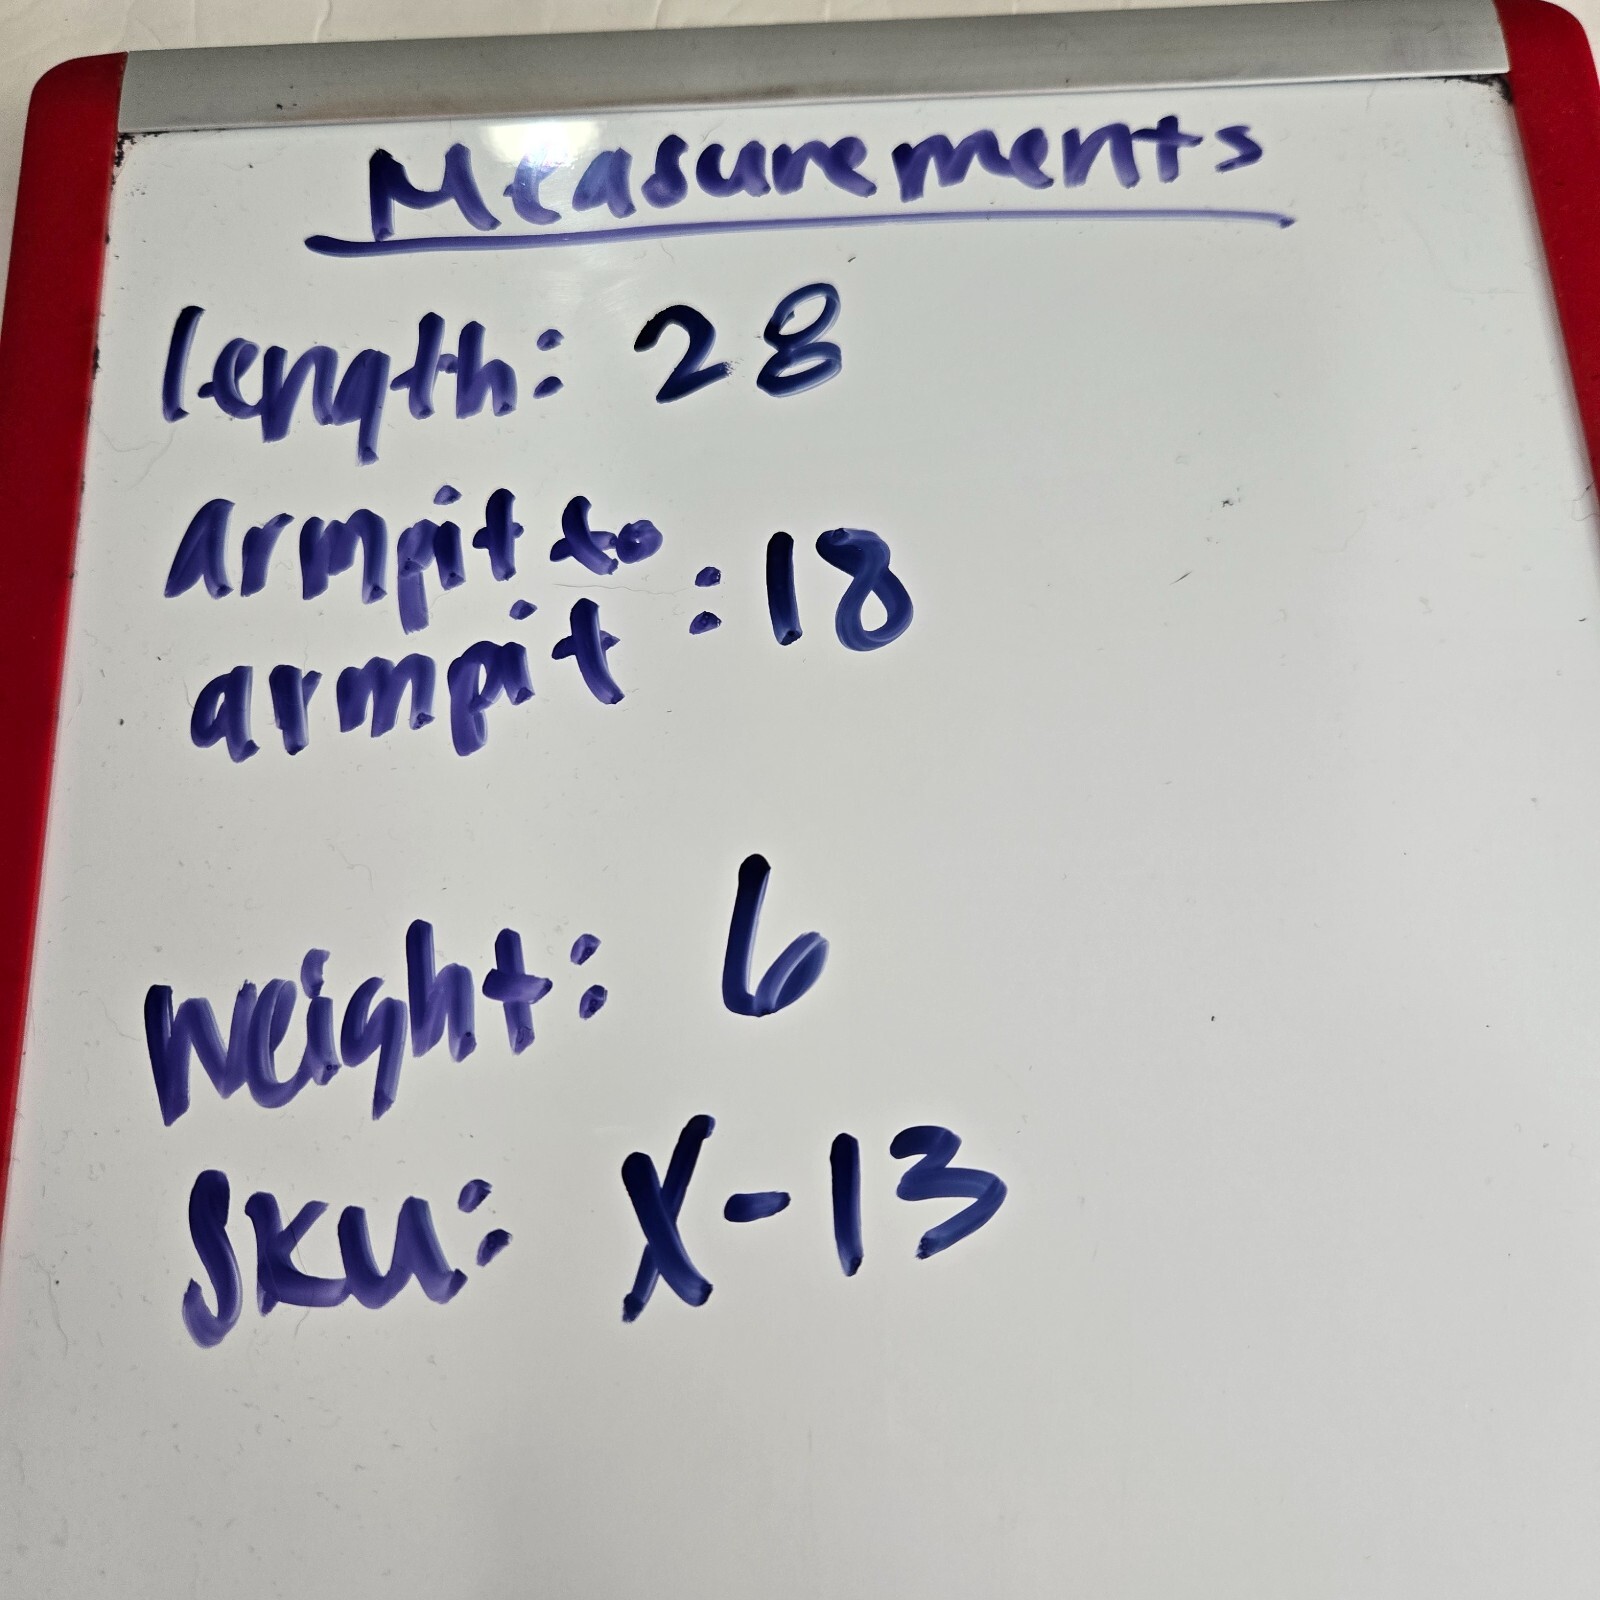 Measurements
length: 28
armpit to
armpit : 18
weight: 6
SKU: X-13